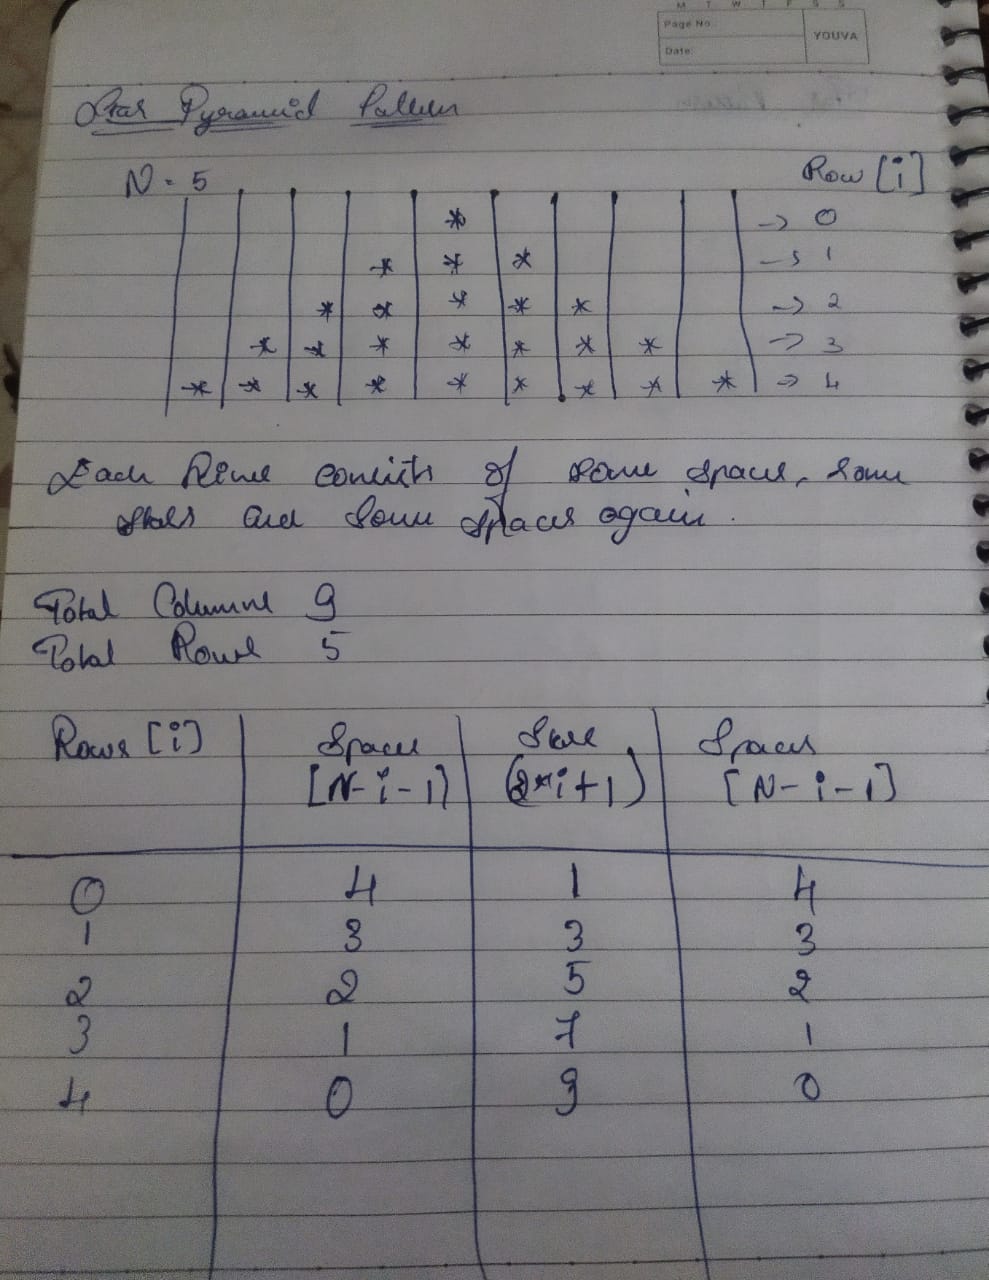 M T W T F S S
Page No.
Date:
YOUVA
Star Pyramid Pattern
N = 5
Row [i]
* → 0
* * * → 1
* * * * * → 2
* * * * * * * → 3
* * * * * * * * * → 4
Each Line consists of some spaces, some
stars and some spaces again.
Total Columns 9
Total Rows 5
Rows [i] Spaces Stars Spaces
[N-i-1] (2*i+1) [N-i-1]
0 4 1 4
1 3 3 3
2 2 5 2
3 1 7 1
4 0 9 0